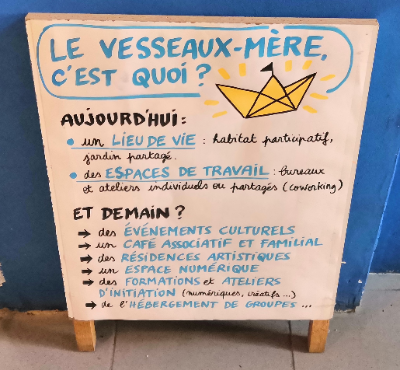 LE VESSEAUX-MÈRE,
C'EST QUOI ?
AUJOURD'HUI :
• un LIEU DE VIE : habitat participatif,
jardin partagé.
• des ESPACES DE TRAVAIL : bureaux
et ateliers individuels ou partagés (coworking)
ET DEMAIN ?
→ des ÉVÉNEMENTS CULTURELS
→ un CAFÉ ASSOCIATIF ET FAMILIAL
→ des RÉSIDENCES ARTISTIQUES
→ un ESPACE NUMÉRIQUE
→ des FORMATIONS et ATELIERS
D'INITIATION (numériques, créatifs ...)
→ de l'HÉBERGEMENT DE GROUPES ...